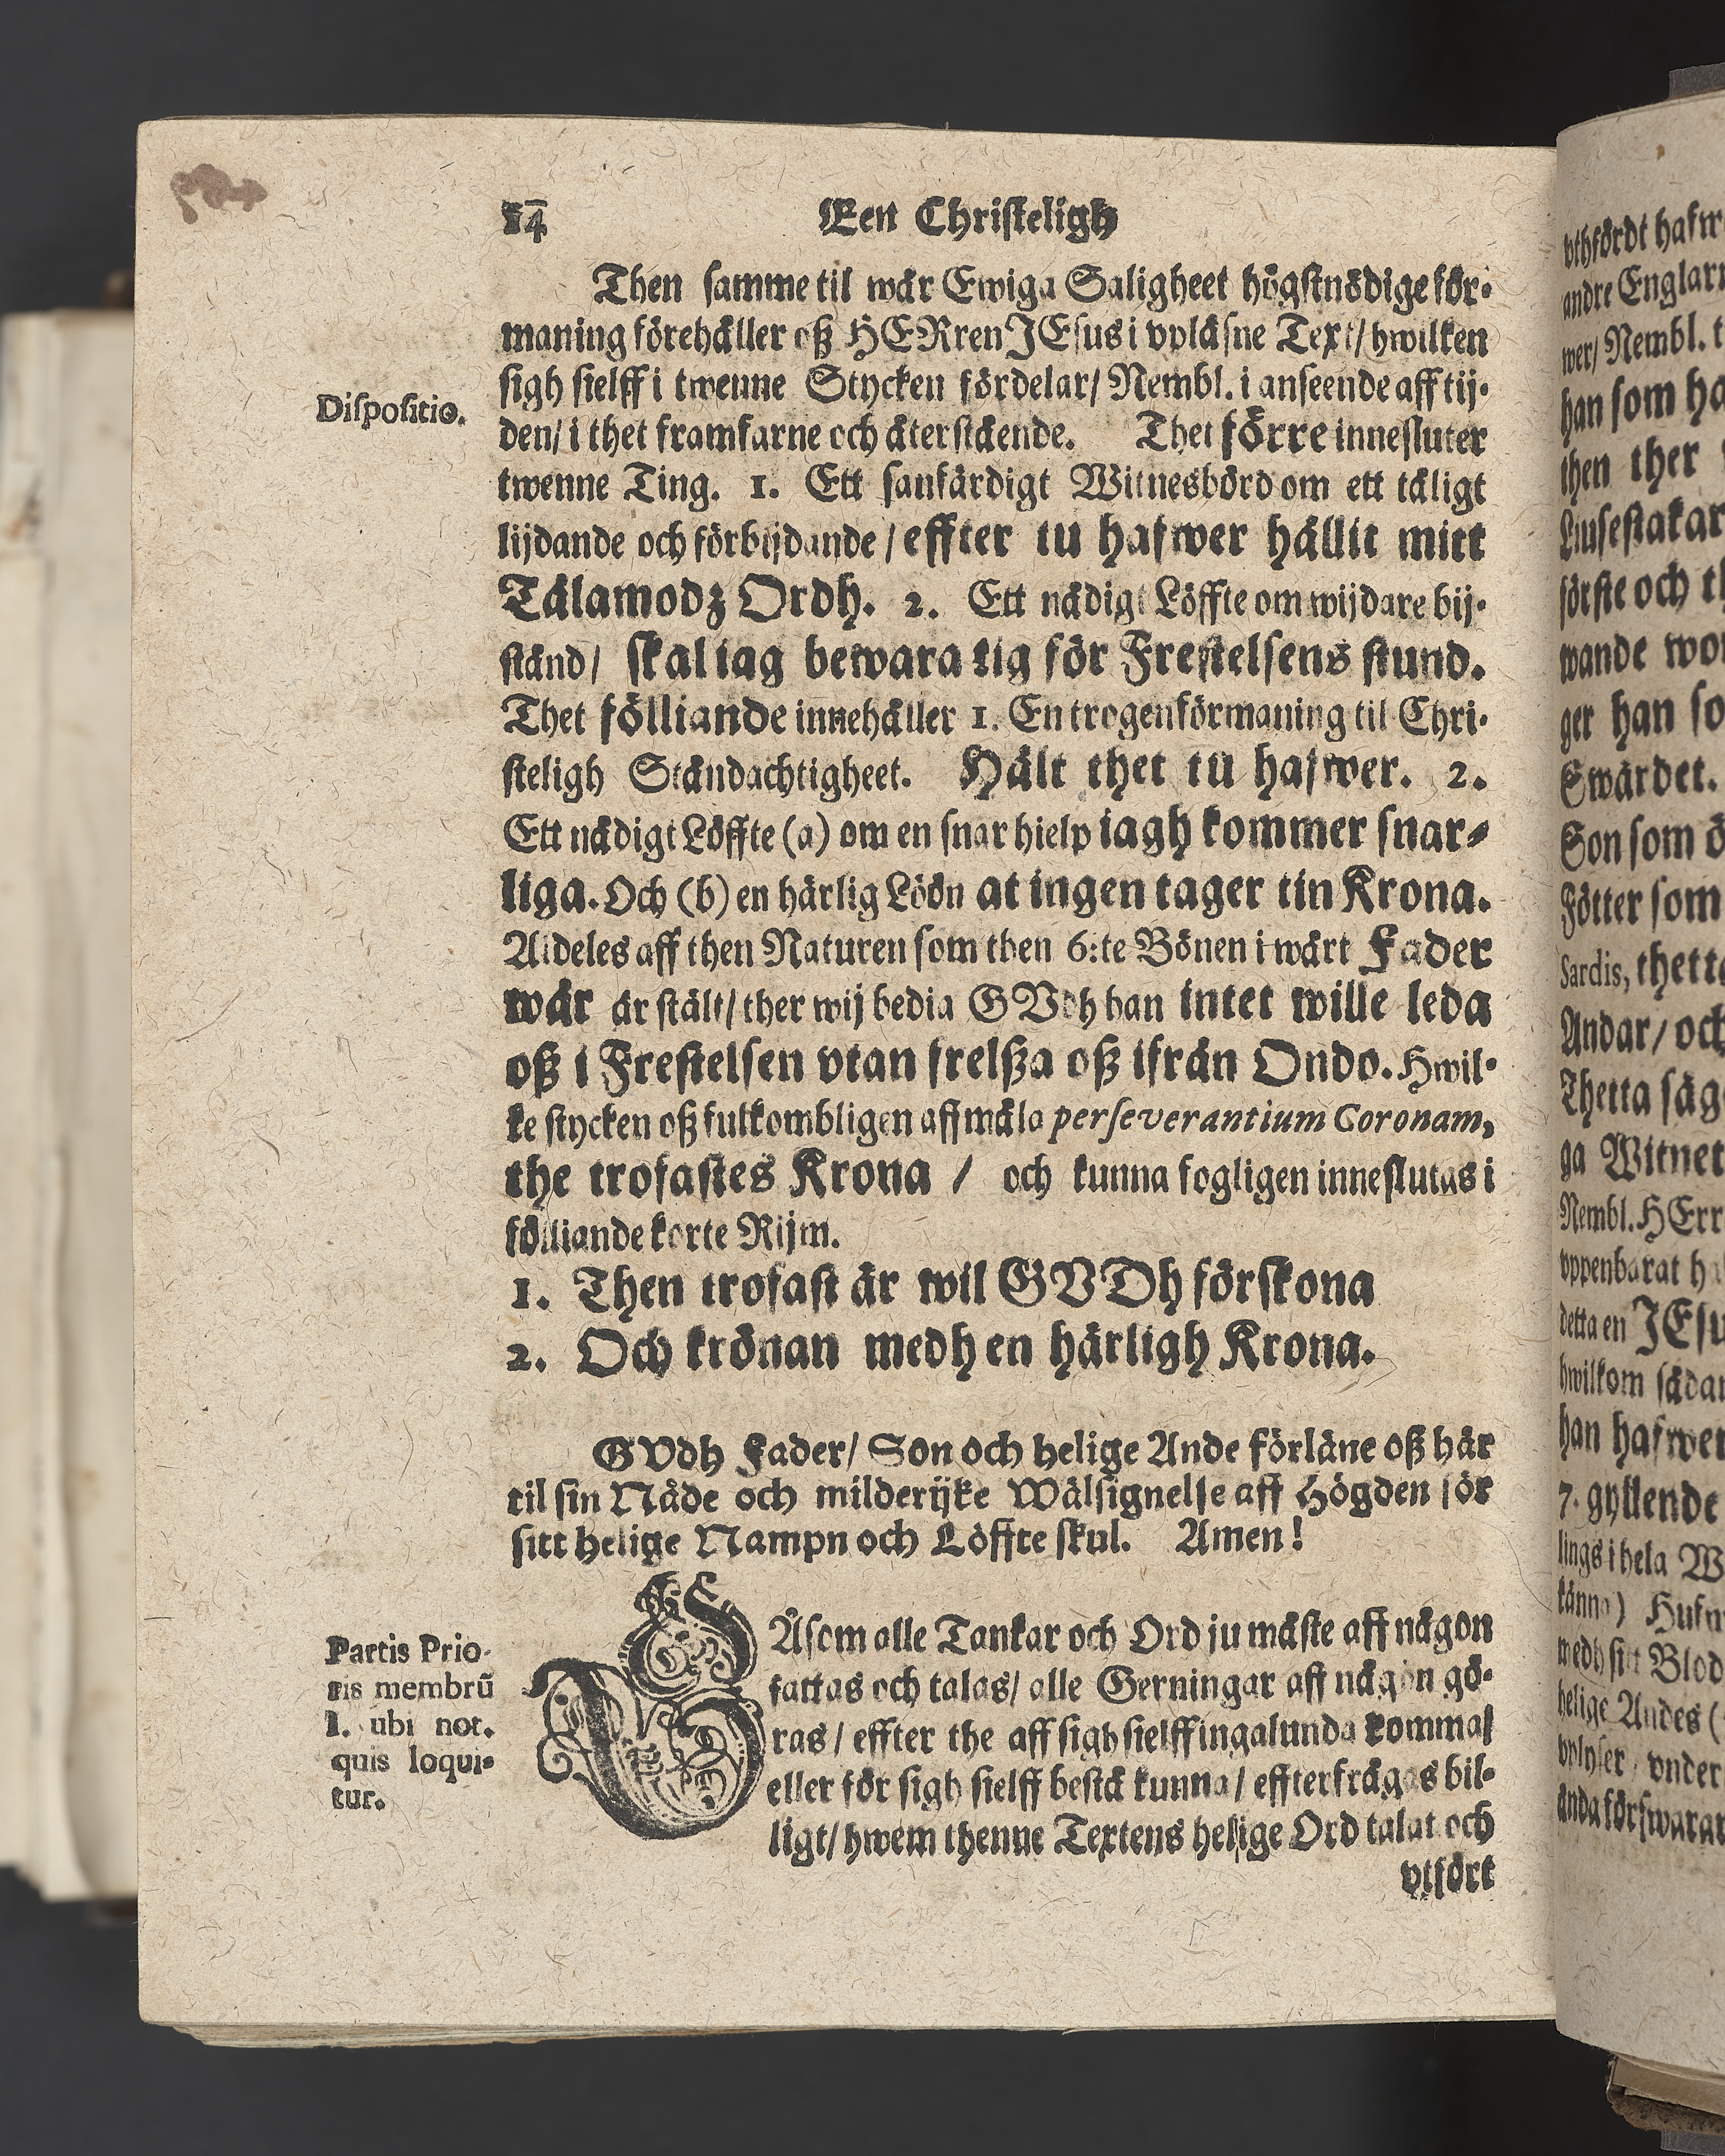 14 Een Christeligh
Then samme til wår Ewiga Saligheet högstnödige för-
maning förehåller oß HERren JEsus i vpläsne Text/ hwilken
sigh sielff i twenne Stycken fördelar/ Nembl. i anseende aff tij-
Dispositio.
den/ i thet framfarne och återstående. Thet förre innesluter
twenne Ting. 1. Ett sanfärdigt Witnesbörd om ett tåligt
lijdande och förbijdande / effter tu hafwer hållit mitt
Tålamodz Ordh. 2. Ett nådigt Löffte om wijdare bij-
stånd/ skal iag bewara tig för Frestelsens stund.
Thet fölliande innehåller 1. En trogen förmaning til Chri-
steligh Ståndachtigheet. Hålt thet tu hafwer. 2.
Ett nådigt Löffte (a) om en snar hielp iagh kommer snar-
liga. Och (b) en härlig Löön at ingen tager tin Krona.
Aldeles aff then Naturen som then 6:te Bönen i wårt Fader
wår är stält/ ther wij bedia GVdh han intet wille leda
oß i Frestelsen vtan frelßa oß ifrån Ondo. Hwil-
ke stycken oß fulkombligen affmåla perseverantium Coronam,
the trofastes Krona / och kunna fogligen inneslutas i
fölliande korte Rijm.
1. Then trofast är wil GVDh förskona
2. Och krönan medh en härligh Krona.
GVdh Fader/ Son och helige Ande förläne oß här
til sin Nåde och milderijke Wälsignelse aff Högden för
sitt helige Nampn och Löffte skul. Amen!
SÅsom alle Tankar och Ord ju måste aff någon
fattas och talas/ alle Gerningar aff någon gö-
ras/ effter the aff sigh sielff ingalunda komma/
eller för sigh sielff bestå kunna/ effterfrågas bil-
ligt/ hwem thenne Textens helige Ord talat och
Partis Prio-
ris membrū
1. ubi not.
quis loqui-
tur.
vtfört
vthfördt hafw
andre Englar
wer/ Nembl. t
han som ha
then ther
Liusestakar
förste och t
wande wo
ger han so
Swärdet.
Son som
Fötter som
Sardis, thett
Andar/ och
Thetta säg
ga Witnet
Nembl. HErr
vppenbarat h
detta en JEsu
hwilkom såda
han hafwer
7. gyllende
lings i hela W
känna)
medh sitt Blod
helige Andes (
vplyser / vnder
ända förswarar